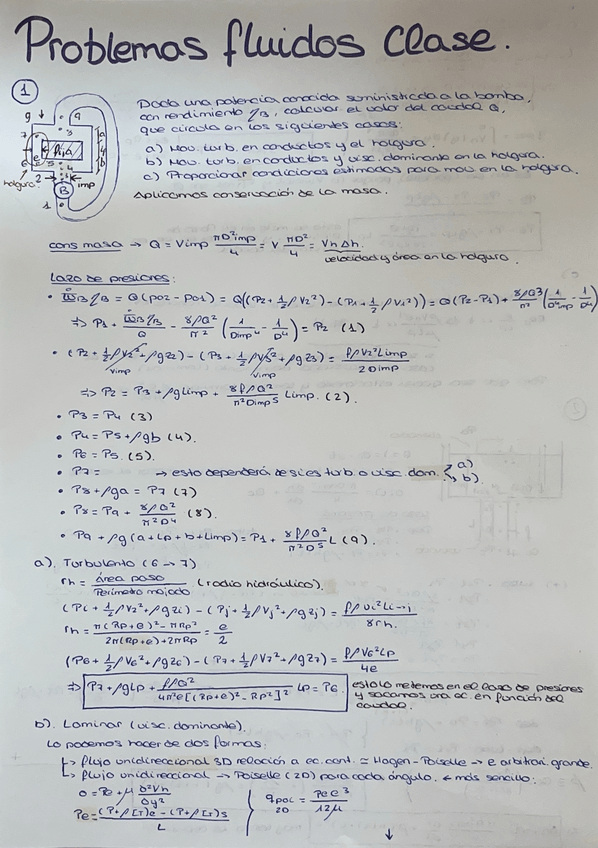 Problemas fluidos Clase.
1
Dada una potencia conocida suministrada a la bomba,
con rendimiento ηB, calcular el valor del caudal Q,
que circula en los siguientes casos:
a) Mov. turb. en conductos y el holgura.
b) Mov. turb. en conductos y visc. dominante en la holgura.
c) Proporcionar condiciones estimadas para mov en la holgura.
Aplicamos conservación de la masa.
holgura
imp
B
cons masa → Q = Vimp πD²imp/4 = V πD²/4 = Vh Δh.
velocidad y área en la holgura.
Lazo de presiones:
• ẆB ηB = Q(p02 - p01) = Q((P2 + ½ρV2²) - (P1 + ½ρV1²)) = Q(P2-P1) + 8ρQ³/π² (1/D⁴imp - 1/D⁴)
⇒ P1 + ẆBηB/Q - 8ρQ²/π² (1/Dimp⁴ - 1/D⁴) = P2 (1)
• (P2 + ½ρV2² + ρgz2) - (P3 + ½ρV3² + ρgz3) = fρV2²Limp/2Dimp
Vimp Vimp
⇒ P2 = P3 + ρgLimp + 8fρQ²/π²Dimp⁵ Limp. (2).
• P3 = P4 (3)
• P4 = P5 + ρgb (4).
• P6 = P5. (5).
• P7 = → esto dependerá de si es turb. o visc. dom. a) b)
• P8 + ρga = P7 (7)
• P8 = P9 + 8ρQ²/π²D⁴ (8).
• P9 + ρg(a + Lp + b + Limp) = P1 + 8fρQ²/π²D⁵ L (9).
a). Turbulento (6 → 7)
rh = área paso/Perímetro mojado (radio hidráulico).
(Pi + ½ρVi² + ρgzi) - (Pj + ½ρVj² + ρgzj) = fρVi²Li→j/8rh.
rh = π(Rp+e)² - πRp²/2π(Rp+e)+2πRp = e/2
(P6 + ½ρV6² + ρgz6) - (P7 + ½ρV7² + ρgz7) = fρV6²Lp/4e
⇒ P7 + ρgLp + fρQ²/4π²e[(Rp+e)² - Rp²]² Lp = P6. esto lo metemos en el lazo de presiones
y sacamos una ec. en función del
caudal.
b). Laminar (visc. dominante).
Lo podemos hacer de dos formas:
↳ flujo unidireccional 3D relación a ec. cont. ≃ Hagen-Poiselle → e arbitrari. grande.
↳ flujo unidireccional → Poiselle (2D) para cada ángulo. ← más sencillo:
0 = Pe + μ ∂²Vh/∂y²
qpoi 2D = Pe e³/12μ
Pe = (P+ρ[T])e - (P+ρ[T])s/L
↓